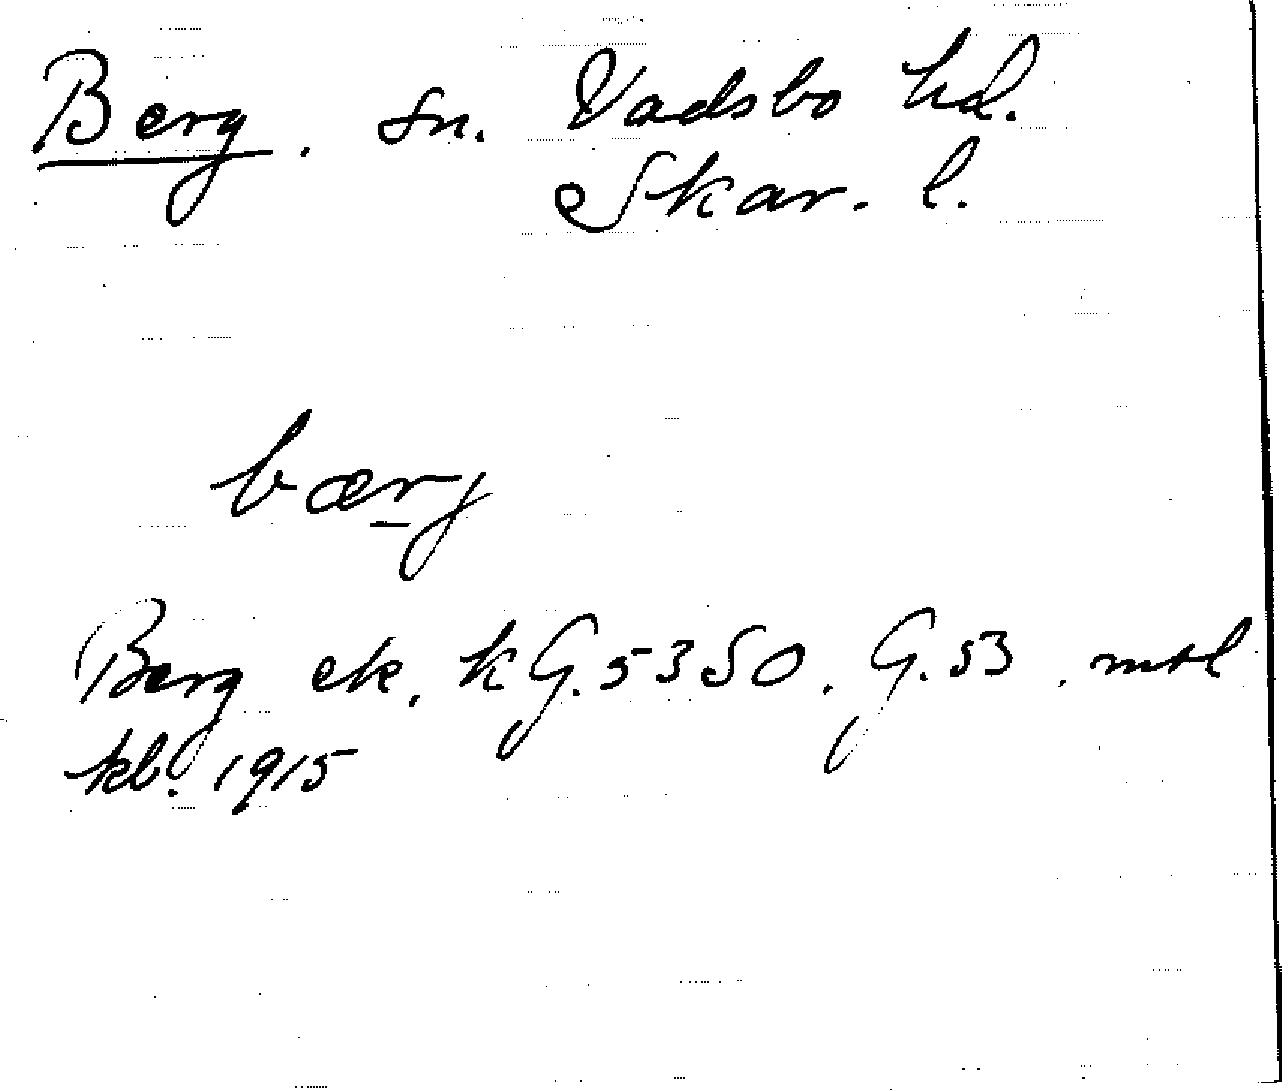 Berg. sn. Vadsbo hd.
Skar. l.
bærj
Berg ek. kG. 5350. G. 53. mtl
kb. 1915